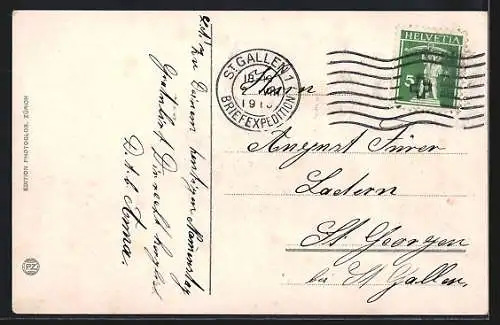 EDITION PHOTOGLOB, ZÜRICH
PZ
zu Deinem heutigen Namenstag
gratuliert Dir recht herzlich
Anna.
ST. GALLEN 1
BRIEFEXPEDITION
HELVETIA
5
Herrn
August Fürer
Ladern
St. Georgen
bei St. Gallen.